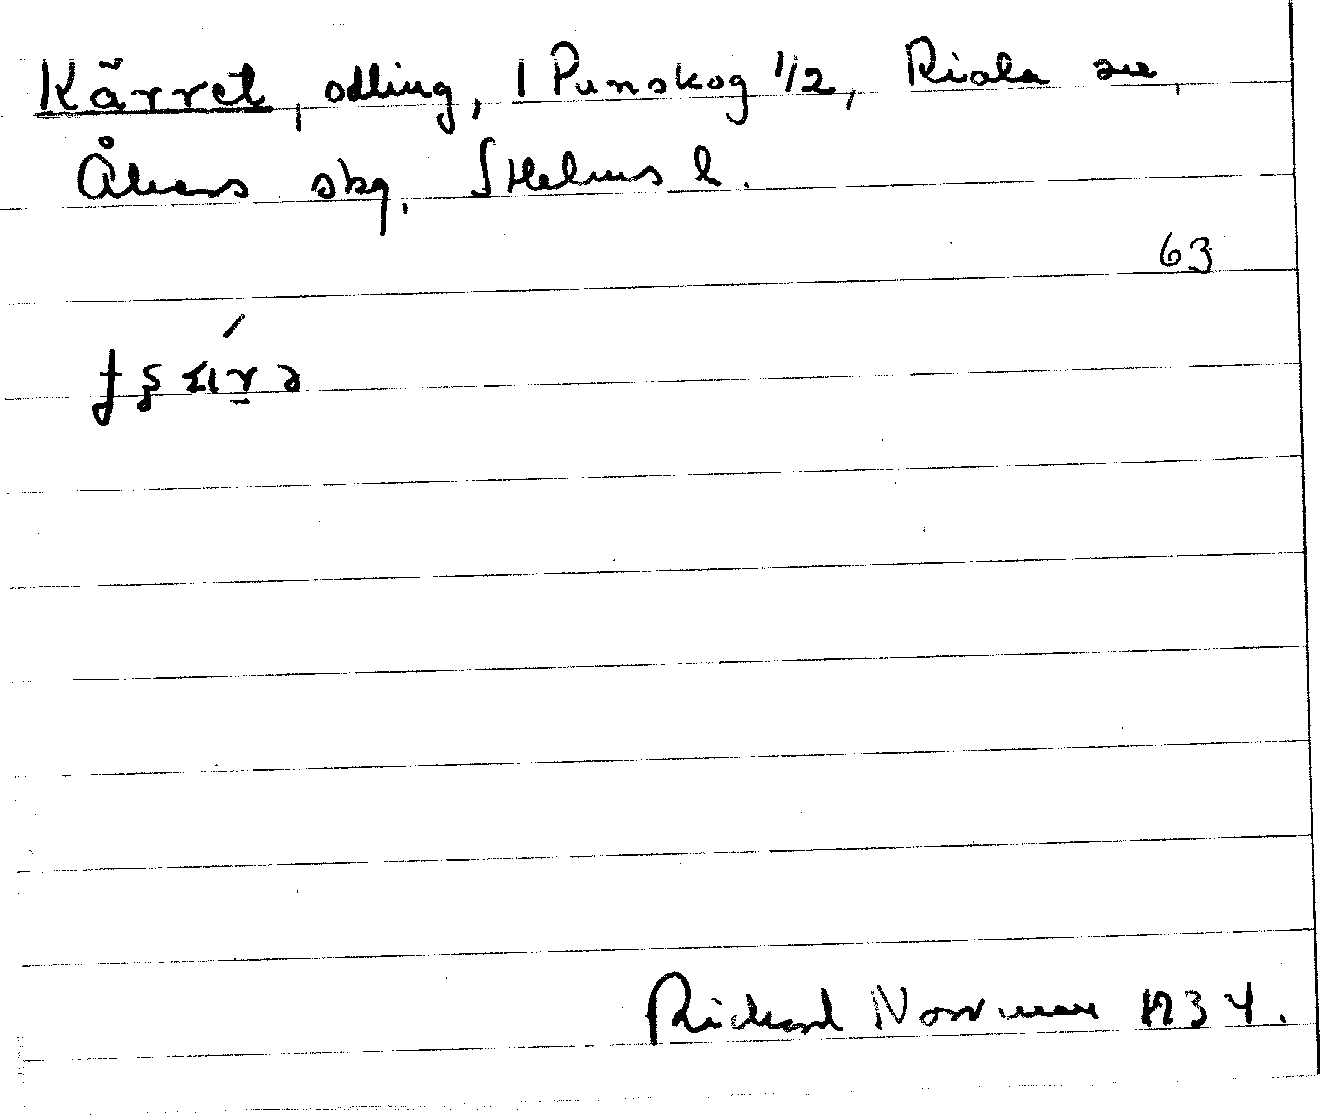 Kärret, odling, 1 Punskog 1/2, Riala sn,
Åkers skg. Sthlms l.
63
Rickard Norrman 1934.